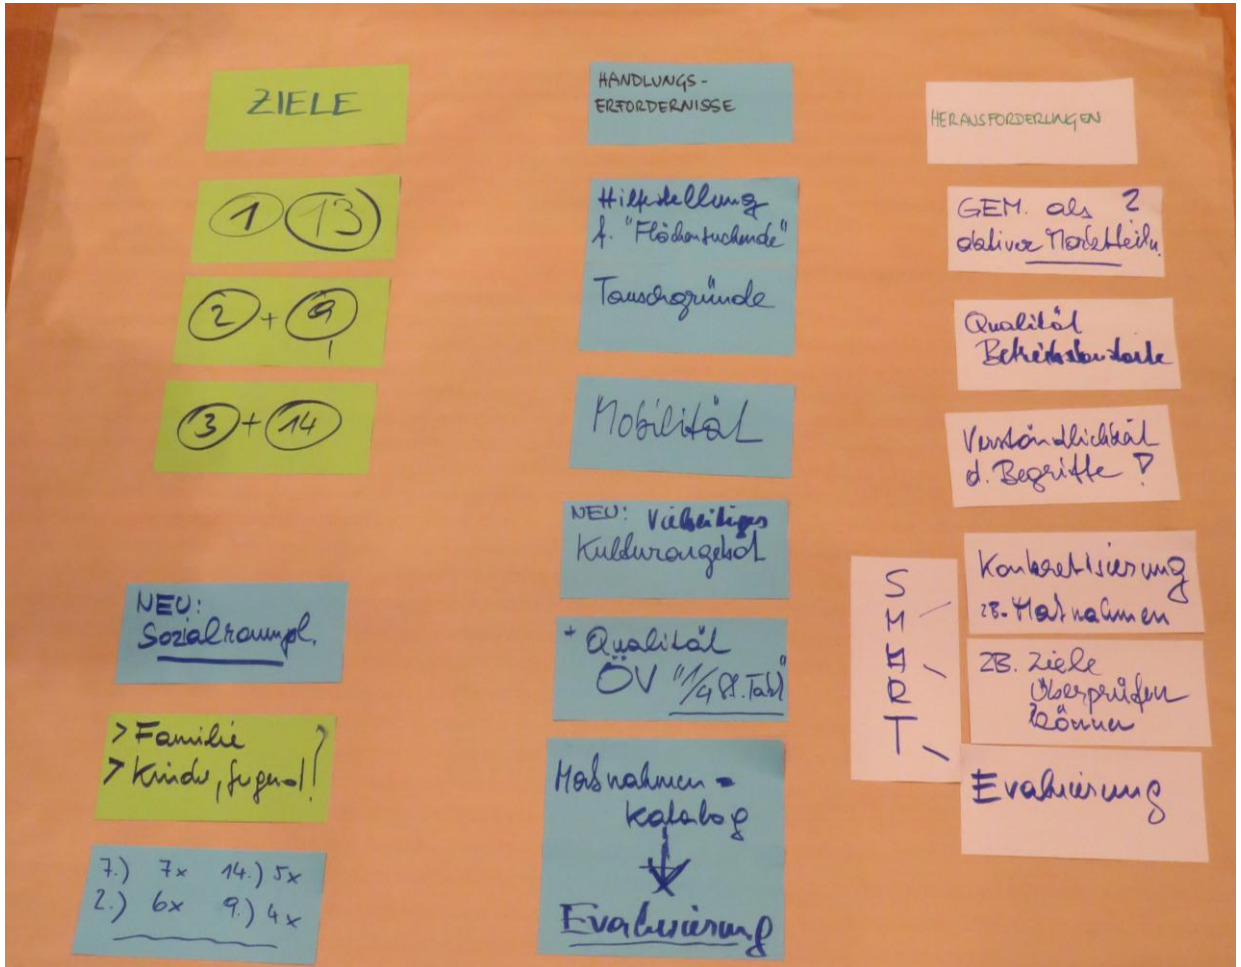 ZIELE
1 13
2 + 9
3 + 14
NEU:
Sozialraumpl.
> Familie
> Kinder, Jugend!
7.) 7x 14.) 5x
2.) 6x 9.) 4x
HANDLUNGS-
ERFORDERNISSE
Hilfestellung
f. "Flächensuchende"
Tauschgründe
Mobilität
NEU: Vielseitiges
Kulturangebot
+ Qualität
ÖV "1/4 St. Takt"
Maßnahmen-
katalog
Evaluierung
HERAUSFORDERUNGEN
GEM. als ?
aktiver Marktteiln.
Qualität
Betriebsstandorte
Verständlichkeit
d. Begriffe ?
S
M
A
R
T
Konkretisierung
zB. Maßnahmen
zB. Ziele
überprüfen
können
Evaluierung